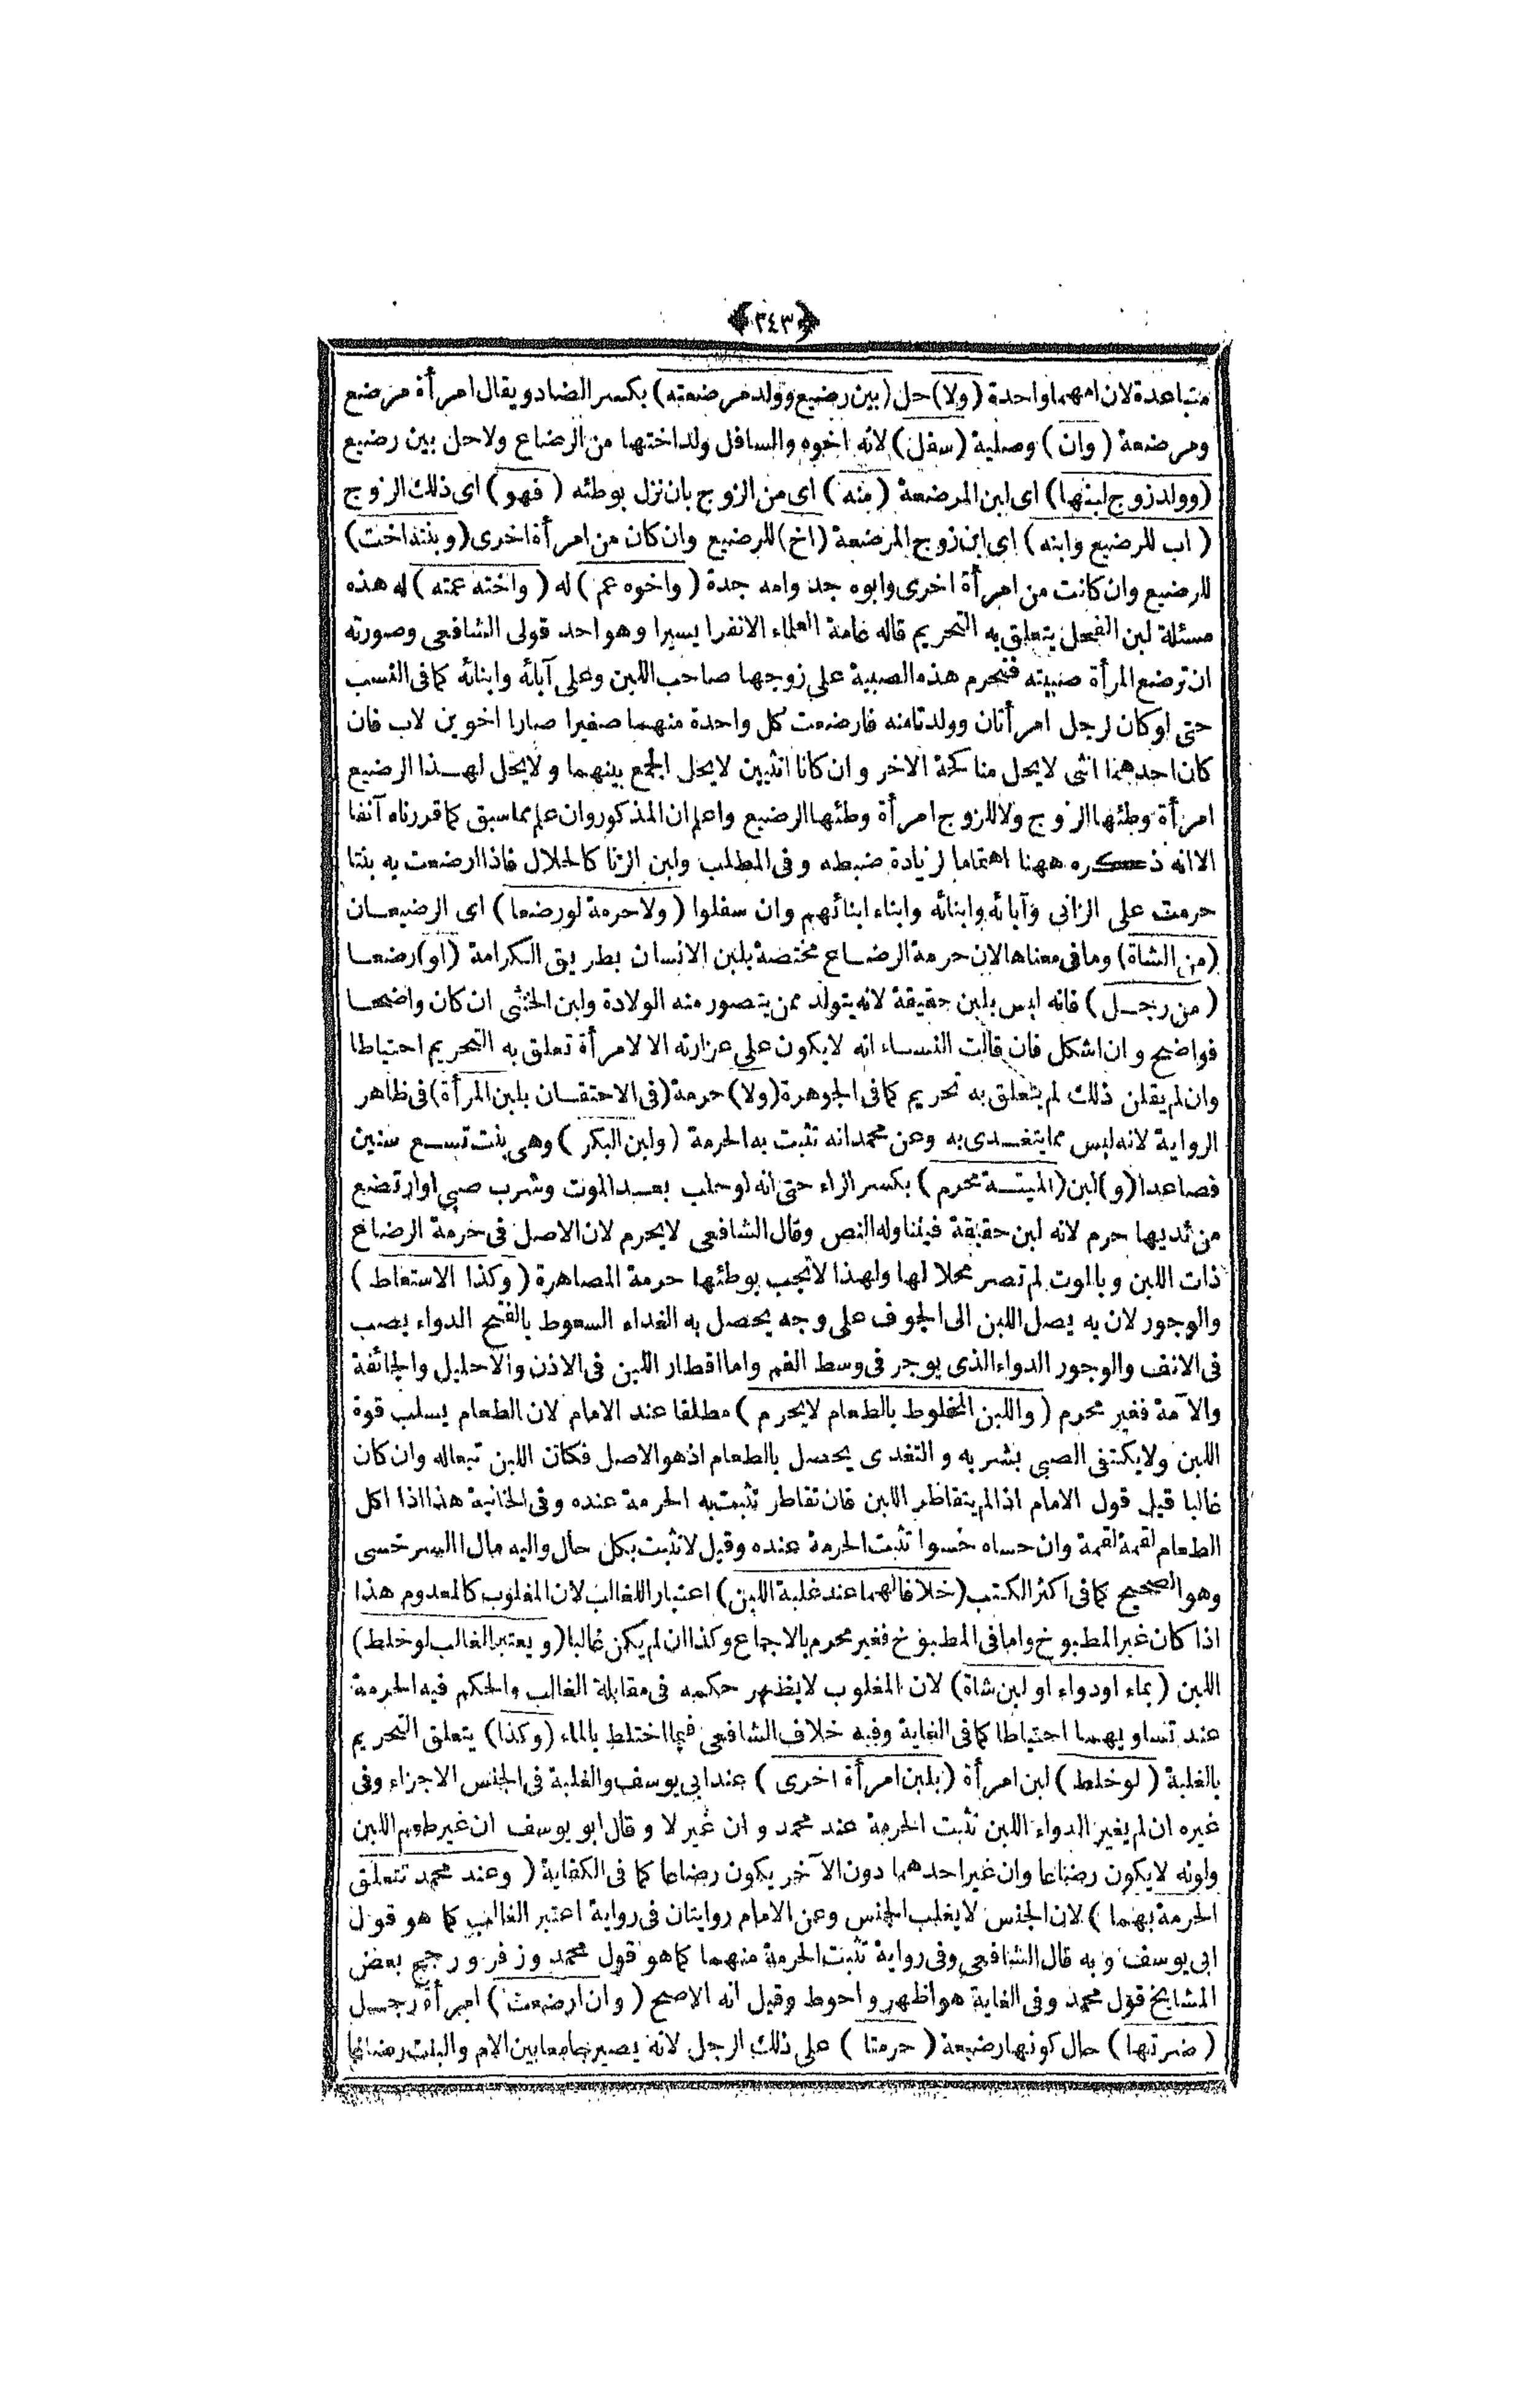 ﴿٣٤٣﴾
متباعدة لان امهما واحدة (ولا) حل (بين رضيع وولد مرضعته) بكسر الضاد ويقال امرأة مرضع
ومرضعة (وان) وصلية (سفل) لانه اخوه والسافل ولد اختها من الرضاع ولا حل بين رضيع
(وولد زوج لبنها) اى لبن المرضعة (منه) اى من الزوج بان نزل بوطئه (فهو) اى ذلك الزوج
(اب للرضيع وابنه) اى ابن زوج المرضعة (اخ) للرضيع وان كان من امرأة اخرى (وبنته اخت)
للرضيع وان كانت من امرأة اخرى وابوه جد وامه جدة (واخوه عم) له (واخته عمته) له هذه
مسئلة لبن الفحل يتعلق به التحريم قاله عامة العلماء الا نفرا يسيرا وهو احد قولى الشافعى وصورته
ان ترضع المرأة صبيته فتحرم هذه الصبية على زوجها صاحب اللبن وعلى آبائه وابنائه كما فى النسب
حتى لو كان لرجل امرأتان وولدتا منه فارضعت كل واحدة منهما صغيرا صارا اخوين لاب فان
كان احدهما انثى لا يحل مناكحة الاخر وان كانا انثيين لا يحل الجمع بينهما ولا يحل لهذا الرضيع
امرأة وطئها الزوج ولا للزوج امرأة وطئها الرضيع واعلم ان المذكور وان علم مما سبق كما قررناه آنفا
الا انه ذكره ههنا اهتماما لزيادة ضبطه وفى المطلب ولبن الزنا كالحلال فاذا ارضعت به بنتا
حرمت على الزانى وآبائه وابنائه وابناء ابنائهم وان سفلوا (ولا حرمة لو رضعا) اى الرضيعان
(من الشاة) وما فى معناها لان حرمة الرضاع مختصة بلبن الانسان بطريق الكرامة (او) رضعا
(من رجل) فانه ليس بلبن حقيقة لانه يتولد ممن يتصور منه الولادة ولبن الخنثى ان كان واضحا
فواضح وان اشكل فان قالت النساء انه لا يكون على غزارته الا لامرأة تعلق به التحريم احتياطا
وان لم يقلن ذلك لم يتعلق به تحريم كما فى الجوهرة (ولا) حرمة (فى الاحتقان بلبن المرأة) فى ظاهر
الرواية لانه ليس مما يتغدى به وعن محمد انه تثبت به الحرمة (ولبن البكر) وهى بنت تسع سنين
فصاعدا (و) لبن (الميتة محرم) بكسر الراء حتى انه لو حلب بعد الموت وشرب صبى او ارتضع
من ثديها حرم لانه لبن حقيقة فيتناوله النص وقال الشافعى لا يحرم لان الاصل فى حرمة الرضاع
ذات اللبن وبالموت لم تصر محلا لها ولهذا لا تجب بوطئها حرمة المصاهرة (وكذا الاستعاط)
والوجور لان به يصل اللبن الى الجوف على وجه يحصل به الغداء السعوط بالفتح الدواء يصب
فى الانف والوجور الدواء الذى يوجر فى وسط الفم واما اقطار اللبن فى الاذن والاحليل والجائفة
والآمة فغير محرم (واللبن المخلوط بالطعام لا يحرم) مطلقا عند الامام لان الطعام يسلب قوة
اللبن ولا يكتفى الصبى بشربه والتغدى يحصل بالطعام اذ هو الاصل فكان اللبن تبعا له وان كان
غالبا قيل قول الامام اذا لم يتقاطر اللبن فان تقاطر تثبت به الحرمة عنده وفى الخانية هذا اذا اكل
الطعام لقمة لقمة وان حساه حسوا تثبت الحرمة عنده وقيل لا تثبت بكل حال واليه مال السرخسى
وهو الصحيح كما فى اكثر الكتب (خلافا لهما عند غلبة اللبن) اعتبارا للغالب لان المغلوب كالمعدوم هذا
اذا كان غير المطبوخ واما فى المطبوخ فغير محرم بالاجماع وكذا ان لم يكن غالبا (ويعتبر الغالب لو خلط)
اللبن (بماء او دواء او لبن شاة) لان المغلوب لا يظهر حكمه فى مقابلة الغالب والحكم فيه الحرمة
عند تساويهما احتياطا كما فى الغاية وفيه خلاف الشافعى فيما اختلط بالماء (وكذا) يتعلق التحريم
بالغلبة (لو خلط) لبن امرأة (بلبن امرأة اخرى) عند ابى يوسف والغلبة فى الجنس الاجزاء وفى
غيره ان لم يغير الدواء اللبن تثبت الحرمة عند محمد وان غير لا وقال ابو يوسف ان غير طعم اللبن
ولونه لا يكون رضاعا وان غير احدهما دون الآخر يكون رضاعا كما فى الكفاية (وعند محمد تتعلق
الحرمة بهما) لان الجنس لا يغلب الجنس وعن الامام روايتان فى رواية اعتبر الغالب كما هو قول
ابى يوسف وبه قال الشافعى وفى رواية تثبت الحرمة منهما كما هو قول محمد وزفر ورجح بعض
المشايخ قول محمد وفى الغاية هو اظهر واحوط وقيل انه الاصح (وان ارضعت) امرأة رجل
(ضرتها) حال كونها رضيعة (حرمتا) على ذلك الرجل لانه يصير جامعا بين الام والبنت رضاعا